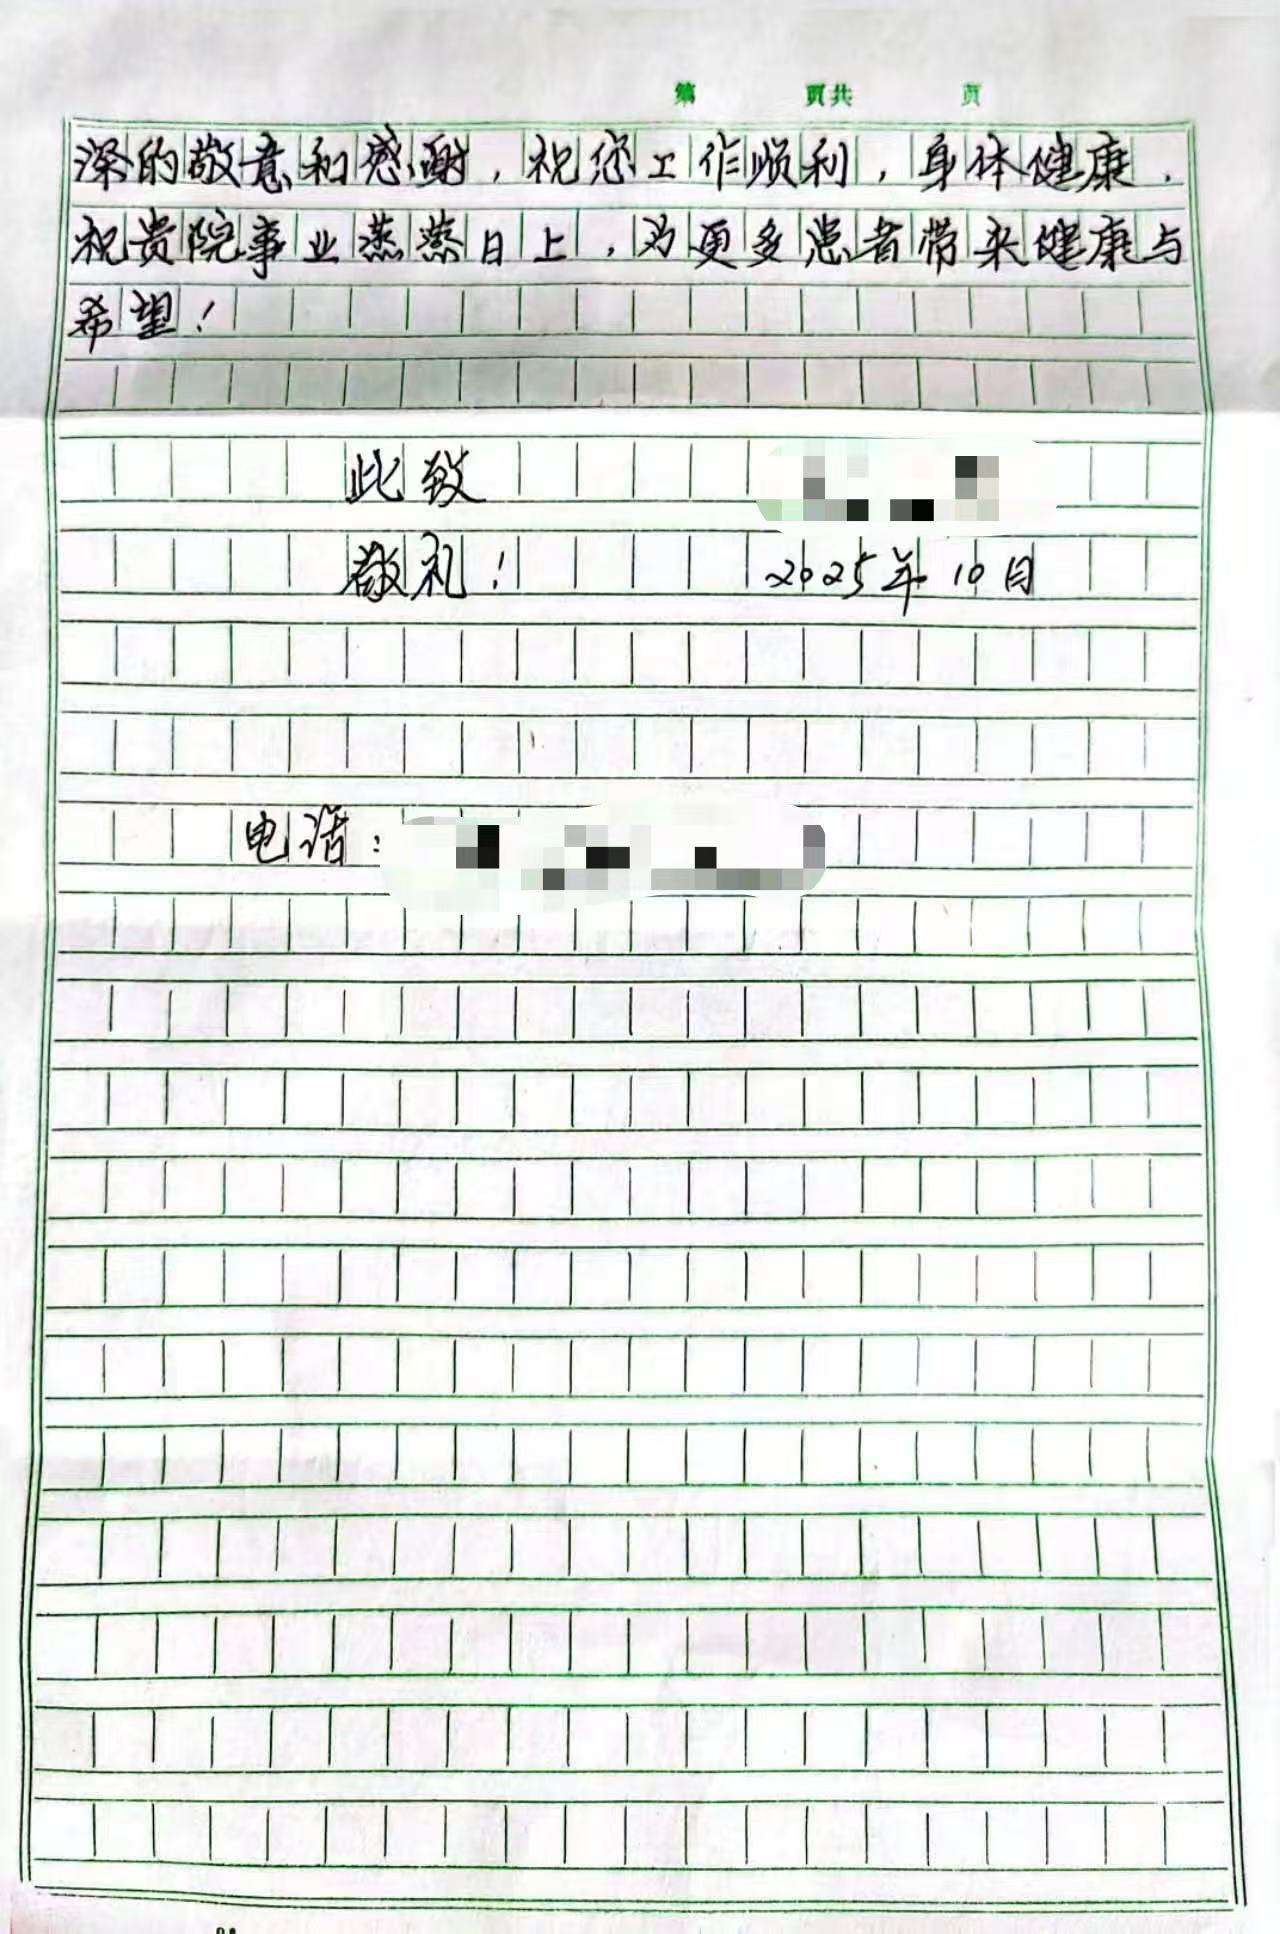 第 頁共 页
深的敬意和感谢，祝您工作顺利，身体健康．
祝贵院事业蒸蒸日上，为更多患者带来健康与
希望！
此致
敬礼！
2025年10日
电话：